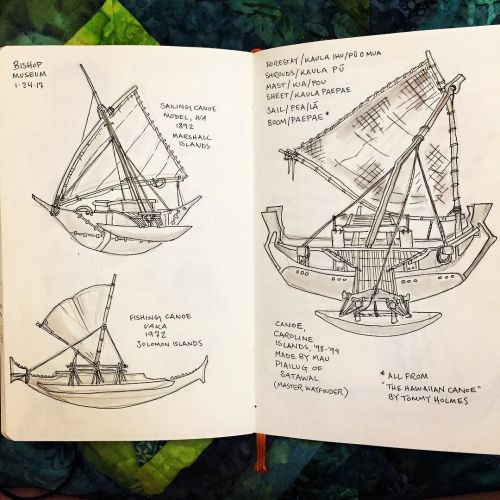 BISHOP
MUSEUM
1-24-17
SAILING CANOE
MODEL, WA
1892
MARSHALL
ISLANDS
FISHING CANOE
VAKA
1972
SOLOMON ISLANDS
FORESTAY/KAULA IHU/PŪ O MUA
SHROUDS/KAULA PŪ
MAST/KIA/POU
SHEET/KAULA PAEPAE
SAIL/PEA/LĀ
BOOM/PAEPAE*
CANOE,
CAROLINE
ISLANDS, '98-'99
MADE BY MAU
PIAILUG OF
SATAWAL
(MASTER WAYFINDER)
* ALL FROM
"THE HAWAIIAN CANOE"
BY TOMMY HOLMES